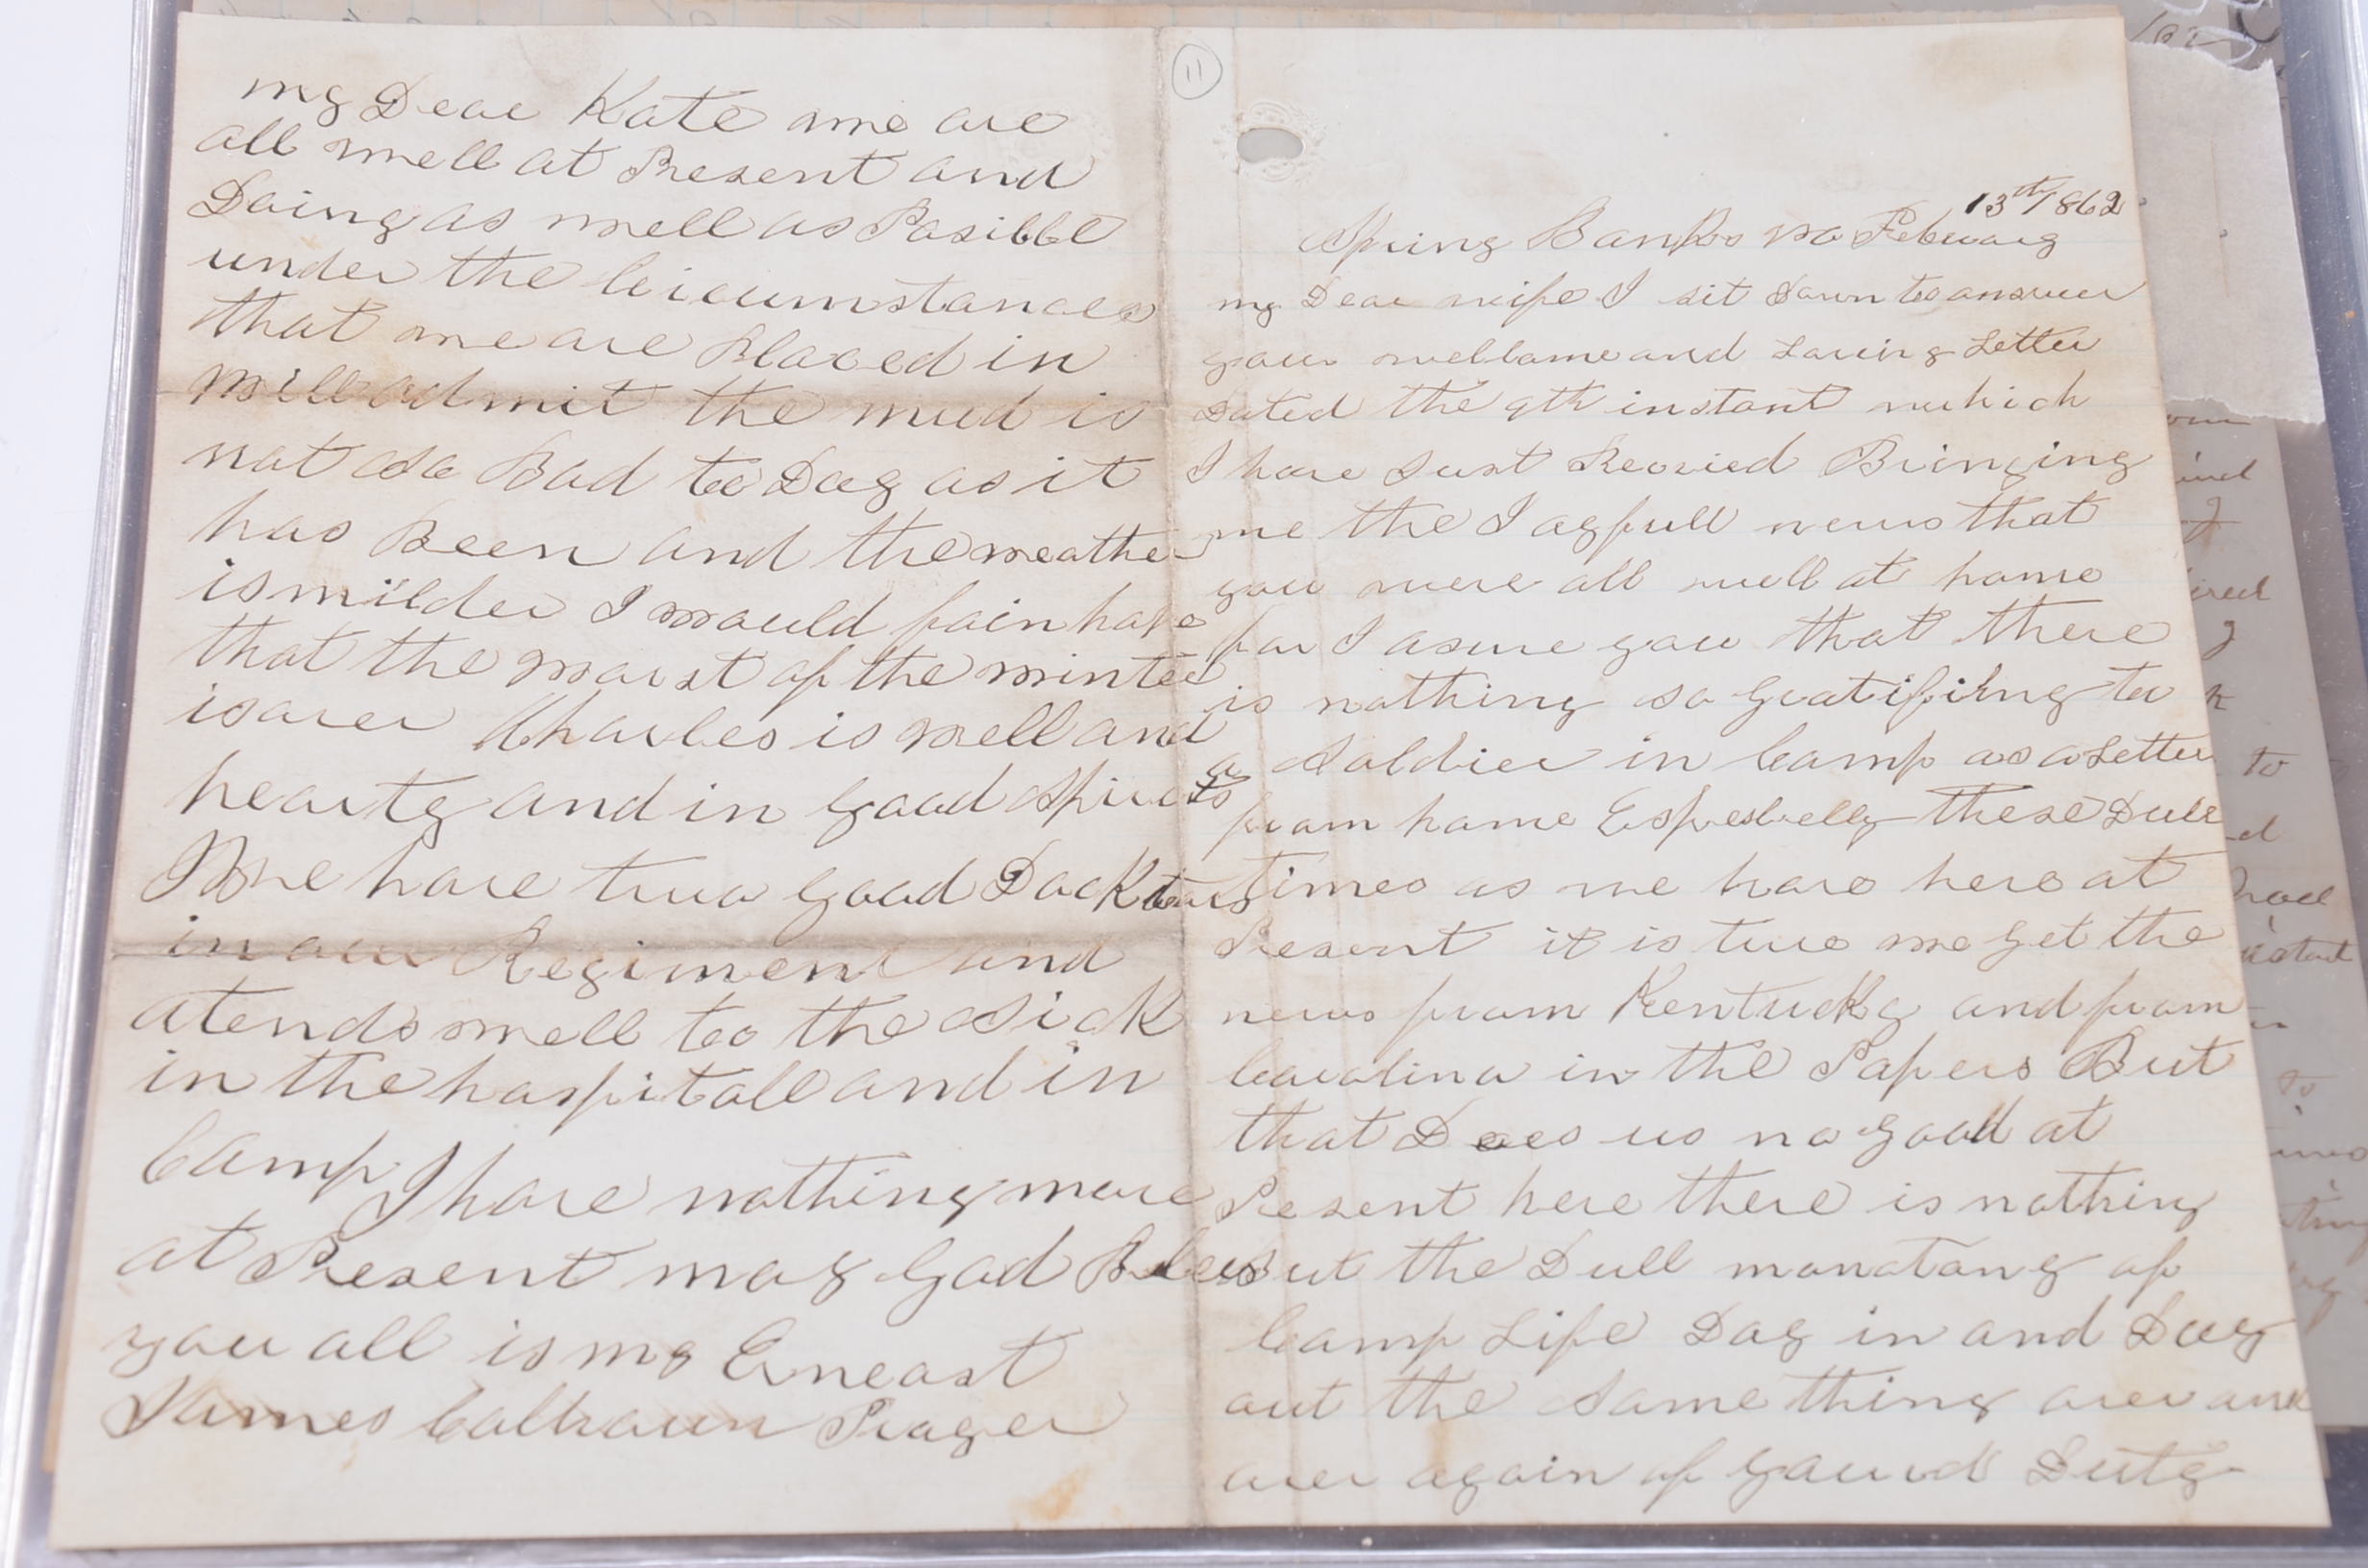 11
13th/1862
Spring Banks va Febuary
my Dear wife I sit Down too answer
your wellcome and Loving Letter
Dated the 9th instant wuhich
I have Just Recvied Bringing
me the Joyfull news that
you were all well at home
for I asure you that there
is nothing so Gratifiing to
a Soldier in Camp as a Letter
from home Espesbelly these Dull
times as we have here at
Present it is true we get the
news from Kentucky and from
Carolina in the Papers But
that Does us no good at
Present here there is nothing
But the Dull monotony of
Camp Life Day in and Day
out the Same thing over and
over again of Gaurd Duty
my Dear Kate we are
all well at Present and
Doing as well as Posible
under the Circumstances
that we are Placed in
Will admit the mud is
not So Bad too Day as it
has Been and the weather
is milder I would fain hope
that the worst of the winter
is over Charles is well and
hearty and in good Spirits
We have two good Docktors
in our Regiment and
atends well too the Sick
in the hospitall and in
Camp I have nothing more
at Present may God Bless
you all is my Erneast
James Calhoun Prayer